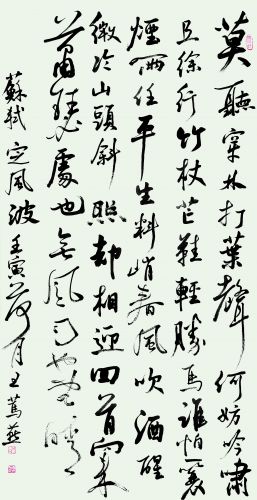 莫聽穿林打葉聲何妨吟嘯
且徐行竹杖芒鞋輕勝馬誰怕一蓑
煙雨任平生料峭春風吹酒醒
微冷山頭斜照却相迎回首向來
蕭瑟處也無風雨也無晴
蘇軾定風波壬寅荷月王燕